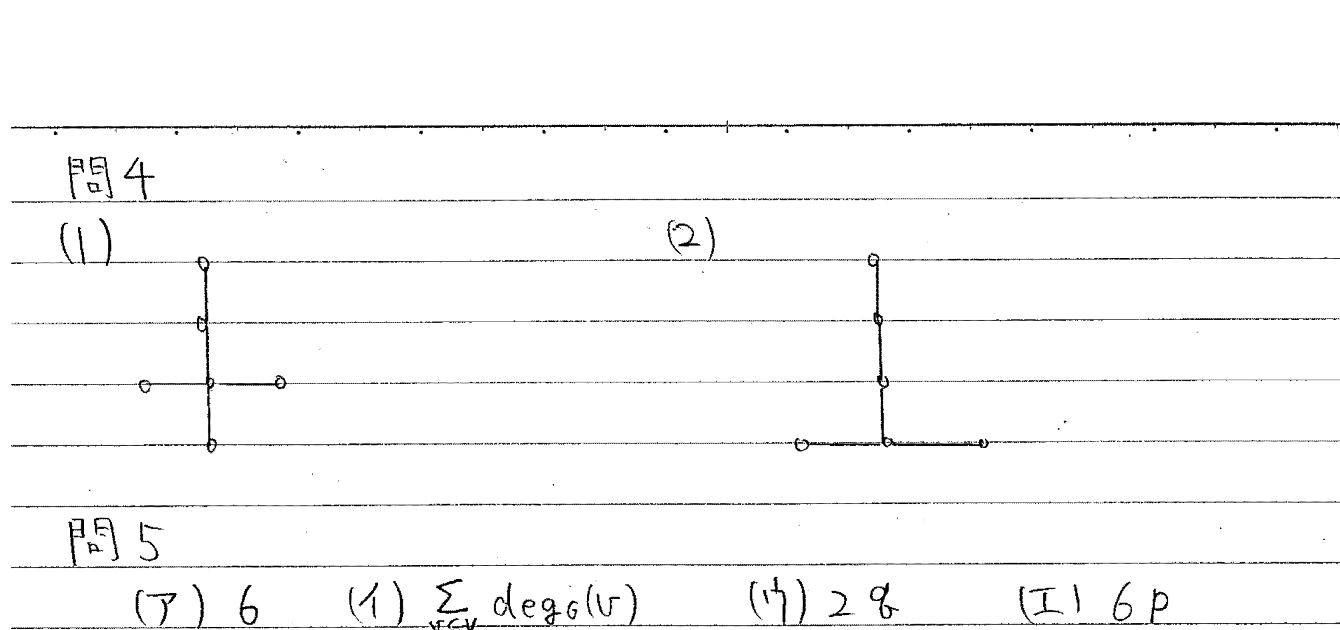 問4
(1) (2)
問5
(ア) 6 (イ) Σ_{v∈V} deg_G(v) (ウ) 2q (エ) 6p